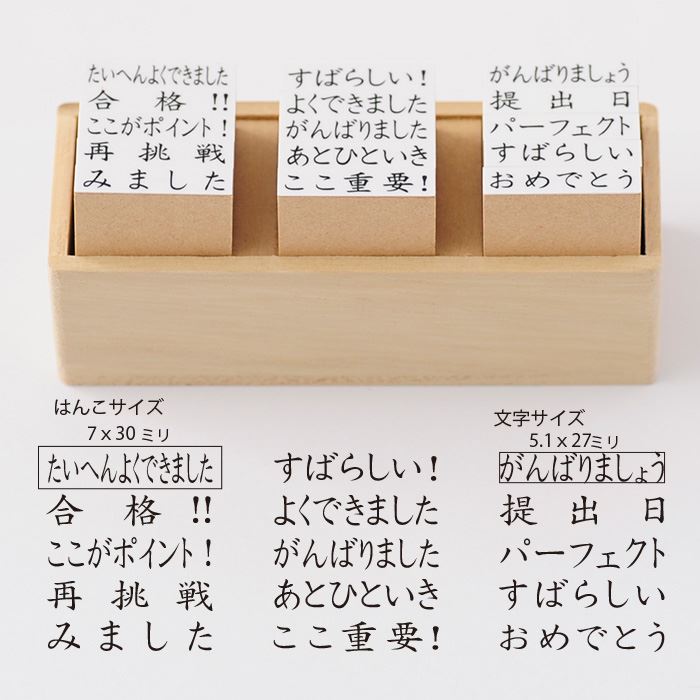 たいへんよくできました
合格!!
ここがポイント!
再挑戦
みました
すばらしい!
よくできました
がんばりました
あとひといき
ここ重要!
がんばりましょう
提出日
パーフェクト
すばらしい
おめでとう
はんこサイズ
7x30ミリ
たいへんよくできました
合格!!
ここがポイント!
再挑戦
みました
すばらしい!
よくできました
がんばりました
あとひといき
ここ重要!
文字サイズ
5.1x27ミリ
がんばりましょう
提出日
パーフェクト
すばらしい
おめでとう